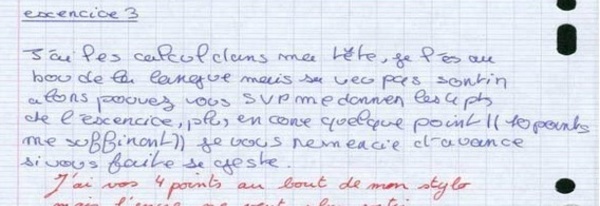 excercice 3
J'ai les calcul dans ma tête, je l'es au
bou de la langue mais sa veu pas sortir
alors pouvez vous SVP me donner les 4 pts
de l'exercice, plus encore quelque point ((10 points
me suffiront)) je vous remercie d'avance
si vous faite se geste.
J'ai vos 4 points au bout de mon stylo
mais l'encre ne veut plus sortir